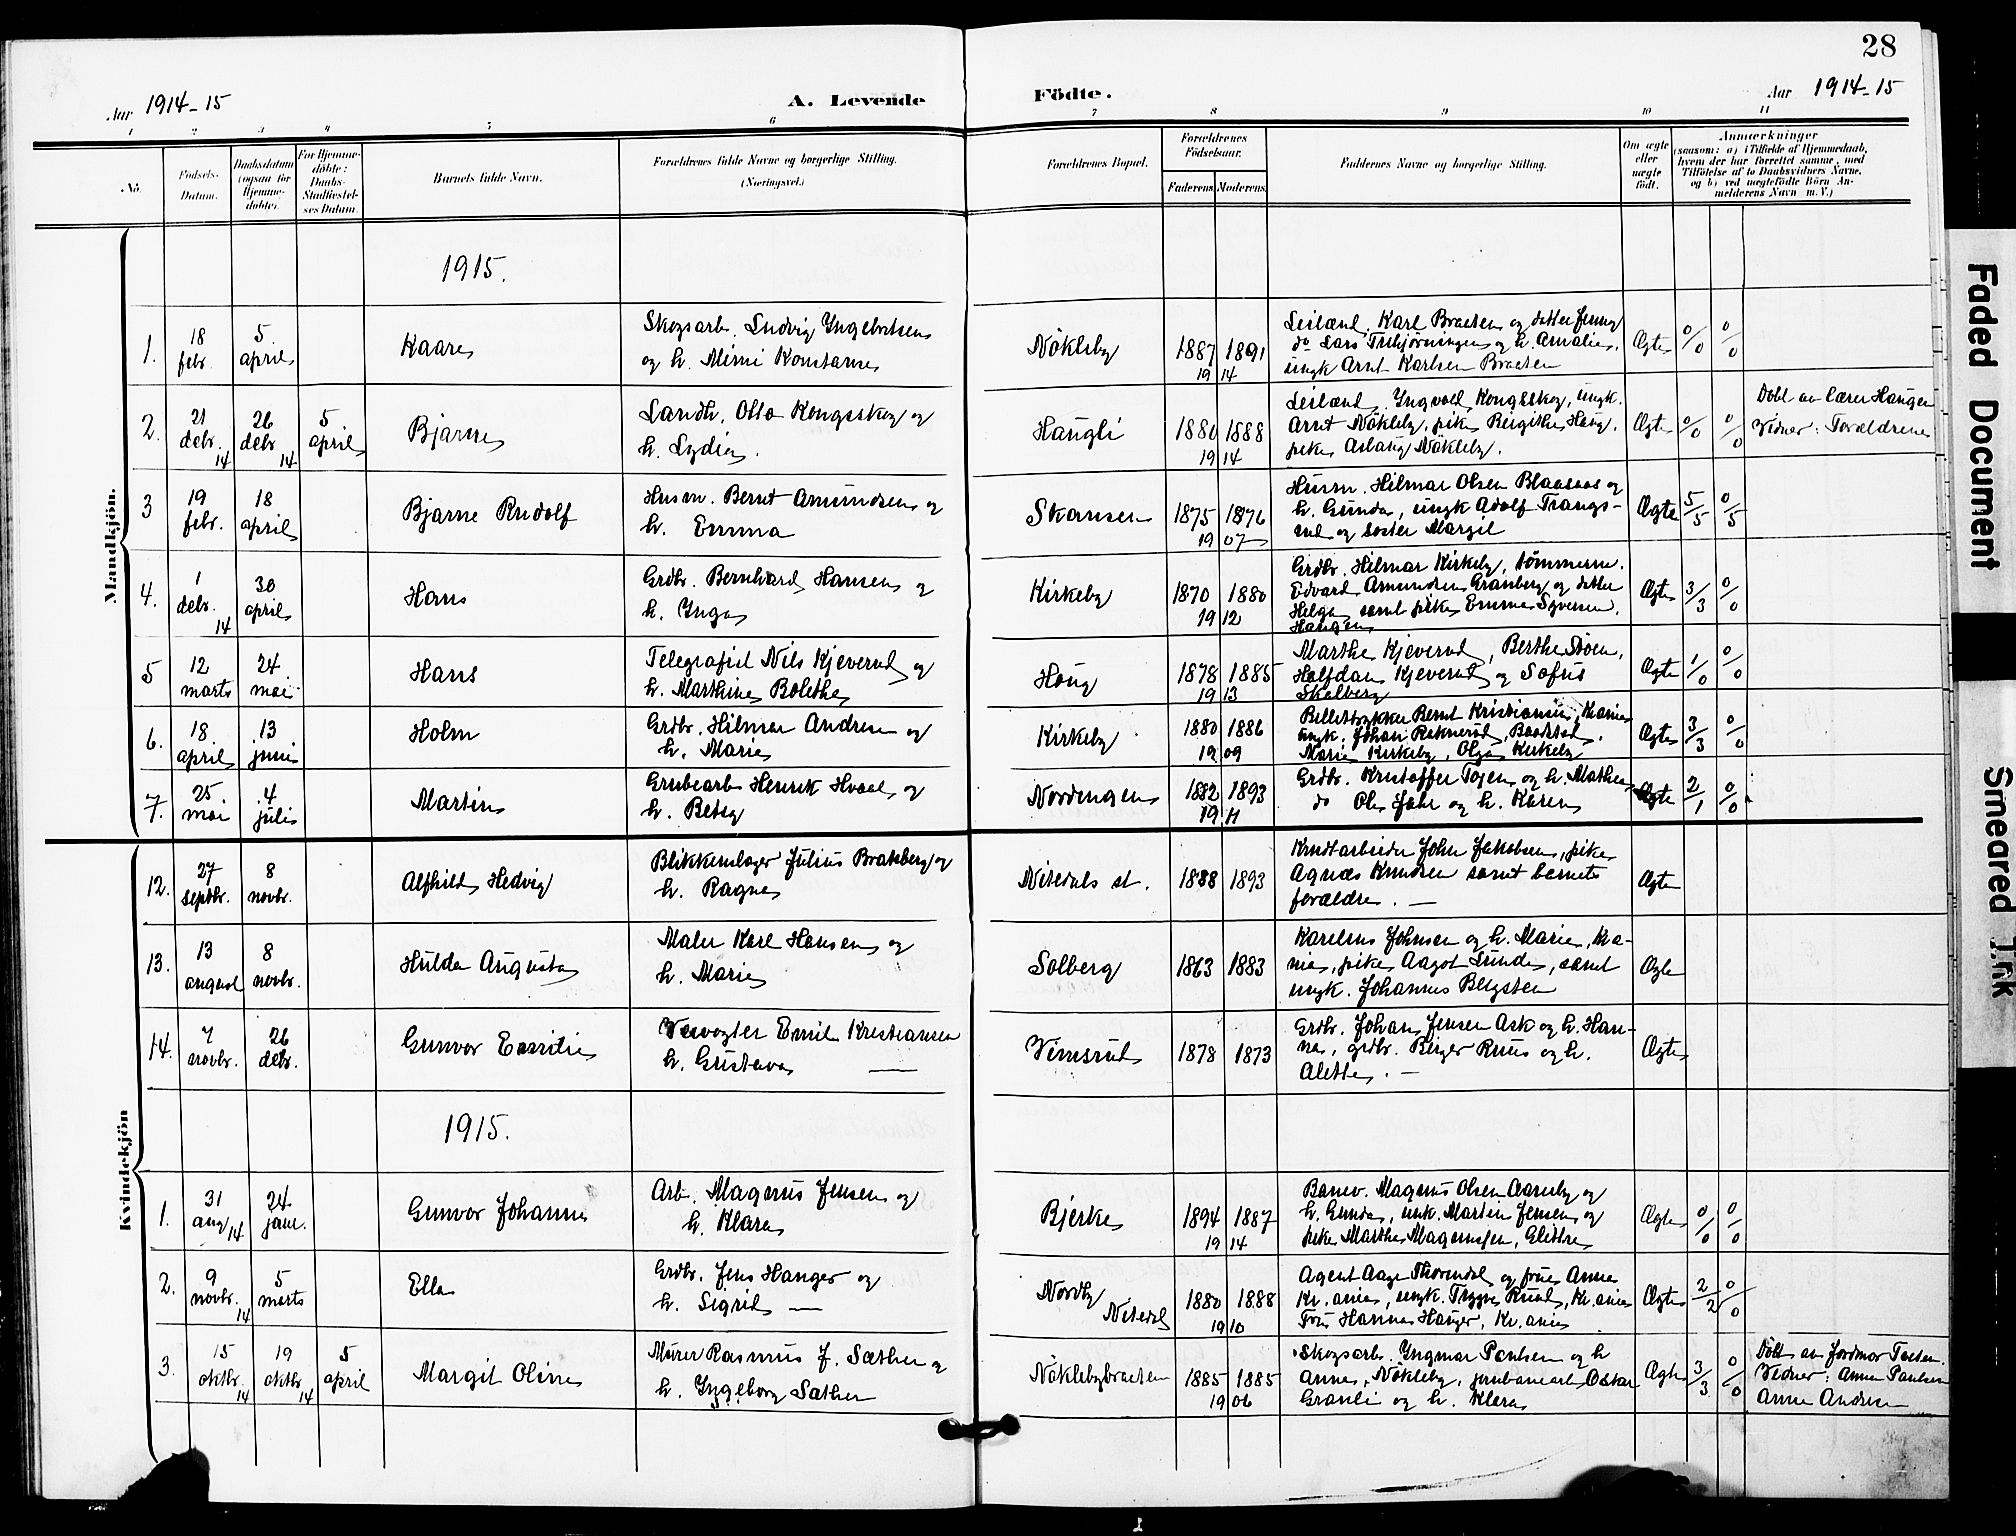 28
Aar 1914-15
A. Levende
Födte.
Aar 1914-15
1 2 3 4 5 6 7 8 9 10 11
No.
Födsels-
Datum.
Daabsdatum
(ogsaa for
Hjemme-
döbte).
For Hjemme-
döbte:
Daabs-
Stadfæstel-
ses Datum.
Barnets fulde Navn.
Forældrenes fulde Navne og borgerlige Stilling.
(Næringsvei.)
Forældrenes Bopæl.
Forældrenes
Födselsaar.
Faderens. Moderens.
Faddernes Navne og borgerlige Stilling.
Om ægte
eller
uægte
födt.
Anmærkninger
(saasom: a) i Tilfælde af Hjemmedaab,
hvem der har forrettet samme, med
Tilföielse af to Daabsvidners Navne,
og b) ved uægtefödte Börn An-
melderens Navn m. V.)
Mandkjön.
1915.
1.
18
febr.
5
april
Kaare
Skogsarb. Ludvig Ingebretsen
og h. Mimi Konstanse
Nökleby
1887 1891
19 14
Leilænd. Karl Braaten og datter Jenny
do Lars og h. Amalie,
ungk Arnt Karlsen Braaten
Ægte
0/0
0/0
2.
21
debr.
14
26
debr.
14
5
april
Bjarne
Landh. Otto Kongsskog og
h. Lydia.
Haugli
1880 1888
19 14
Leilænd. Yngvald Kongsskog, ungk.
Arnt Nökleby, pike Birgithe Haug,
pike Aslaug Nökleby.
Ægte
0/0
0/0
Döbt av lærer Haugen
Vidner: Forældrene
3
19
febr.
18
april
Bjarne Rudolf
Husm. Bernt Amundsen og
h. Emma
Skansen
1875 1876
19 07
Husm. Hilmar Olsen Blaasaas og
h. Gunda, ungk Adolf Trangs-
rud og söster Margit
Ægte
5/5
0/5
4.
1
debr.
14
30
april
Hans
Grdbr. Bernhard Hansen og
h. Inga
Kirkeby
1870 1880
19 12
Grdbr. Hilmar Kirkeby, tömmerm.
Edvard Amundsen Granberg og datter
Helga samt pike Emma Syversen,
Haugen
Ægte
3/3
0/0
5
12
marts
24
mai
Hans
Telegrafist Nils Kjeverud og
h. Marthine Bolethe
Haug
1878 1885
19 13
Marthe Kjeverud, Berthe Stöen,
Halfdan Kjeverud og Sofus
Skalberg
Ægte
1/0
0/0
6.
18
april
13
juni
Holm
Grdbr. Hilmar Andresen og
h. Marie
Kirkeby
1880 1886
19 09
Billettrykker Bernt Kristiansen, Kr.ania
ungk. Johan Raknerud, Baadstad,
Marie Kirkeby, Olga Kirkeby
Ægte
3/3
0/0
7.
25
mai
4
juli
Martin
Grubearb Henrik Hvaal og
h. Betsy
Nordengen
1882 1893
19 11
Grdbr. Kristoffer Tøien og h. Mathea
do Ole Jahr og h. Karen
Ægte
2/1
0/0
Kvindekjön
12.
27
septbr.
8
novbr.
Alfhild Hedvig
Blikkenslager Julius Brateberg og
h. Ragna
Nitedals st.
1888 1893
Krudtarbeider John Jakobsen, pike
Agnæs Knudsen samt barnets
forældre. —
Ægte
13.
13
august
8
novbr.
Hulda Augusta
Maler Karl Hansen og
h. Marie
Solberg
1863 1883
Karelius Johnsen og h. Marie, Kra-
nia, pike Aagot Lunde, samt
ungk. Johannes Bergsten
Ægte
14.
7
novbr.
26
debr.
Gunvor Emilie
Veivogter Emil Kristiansen
h. Gustava —
Vimsrud
1878 1873
Grdbr. Johan Jensen Ask og h. Han-
na, grdbr. Birger Ruus og h.
Alette. —
Ægte
1915.
1.
31
aug
14
24
janr.
Gunvor Johanne
Arb. Magnus Jensen og
h. Klara
Bjerke
1894 1887
19 14
Banev. Magnus Olsen Aaneby og
h. Gunda, ungk. Martin Jensen og
pike Marthe Magnussen, Glittre
Ægte
0/0
0/0
2.
9
novbr.
14
5
marts
Ella
Grdbr. Jens Hauger og
h. Sigrid —
Nordby
Nitedal
1880 1888
19 10
Agent Aage Thorendal og frue Anna
Kr.ania, ungk. Trygve Ruud, Kr.ania
Fru Hanna Hauger, Kr.ania
Ægte
2/2
0/0
3.
15
oktbr.
14
19
oktbr.
14
5
april
Margit Oline
Murer Rasmus J. Sæther og
h. Ingeborg Sæther
Nöklebybraaten
1885 1885
19 06
Skogsarb. Yngmar Paulsen og h
Anna, Nökleby, jernbanearb. Oskar
Granli og h. Klara
Ægte
3/3
0/0
Döbt av Jordmor
Vidner: Anna Paulsen
Anna Andresen
Faded Document
Smeared Ink